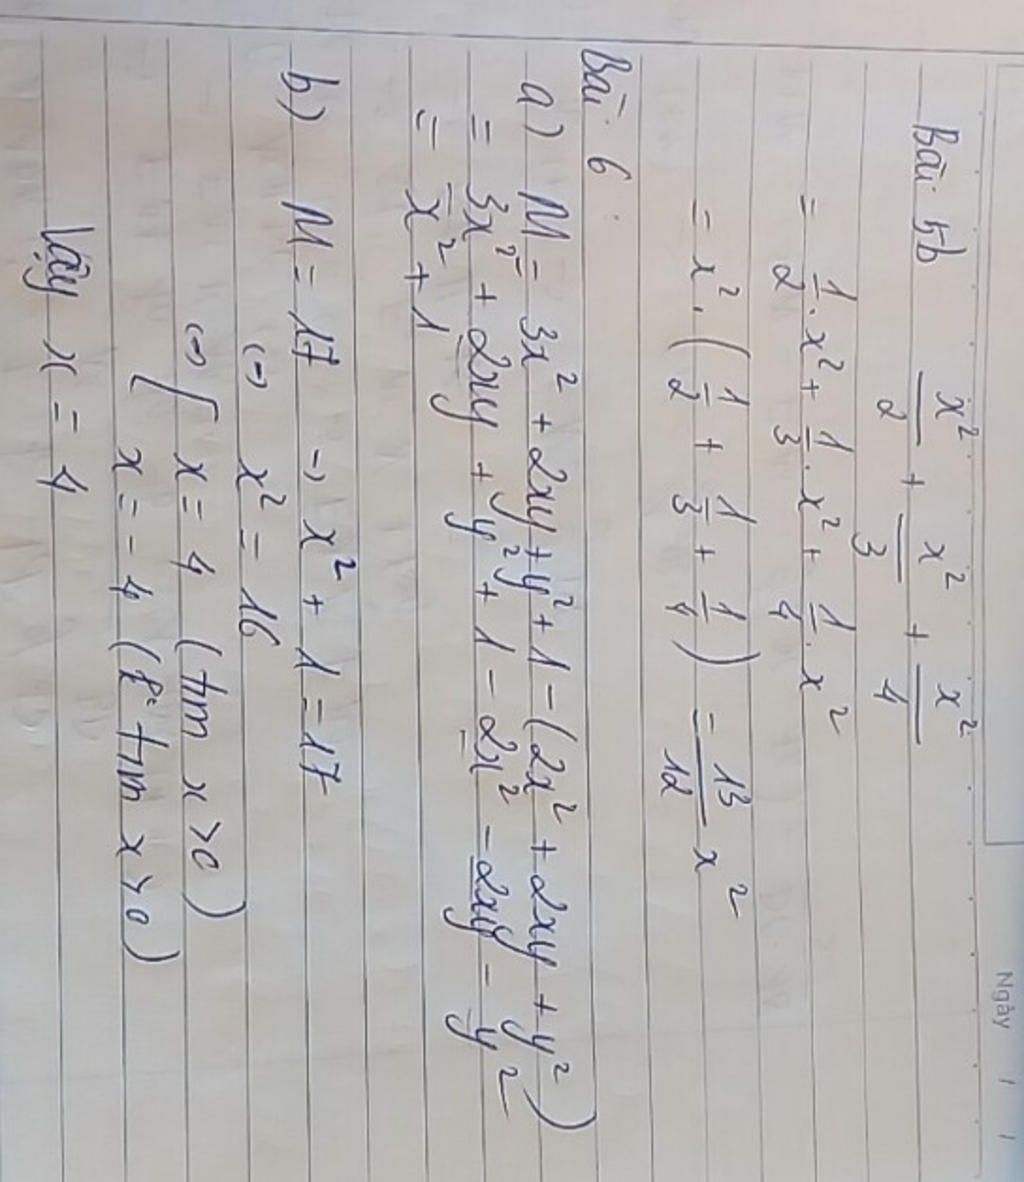 Ngày / /
Bài 5b x²/2 + x²/3 + x²/4
= 1/2 . x² + 1/3 . x² + 1/4 . x²
= x² . (1/2 + 1/3 + 1/4) = 13/12 x²
Bài 6
a) M = 3x² + 2xy + y² + 1 - (2x² + 2xy + y²)
= 3x² + 2xy + y² + 1 - 2x² - 2xy - y²
= x² + 1
b) M = 17 → x² + 1 = 17
(=) x² = 16
(=) [ x = 4 (tm x > 0)
x = - 4 (k° tm x > 0)
Vậy x = 4